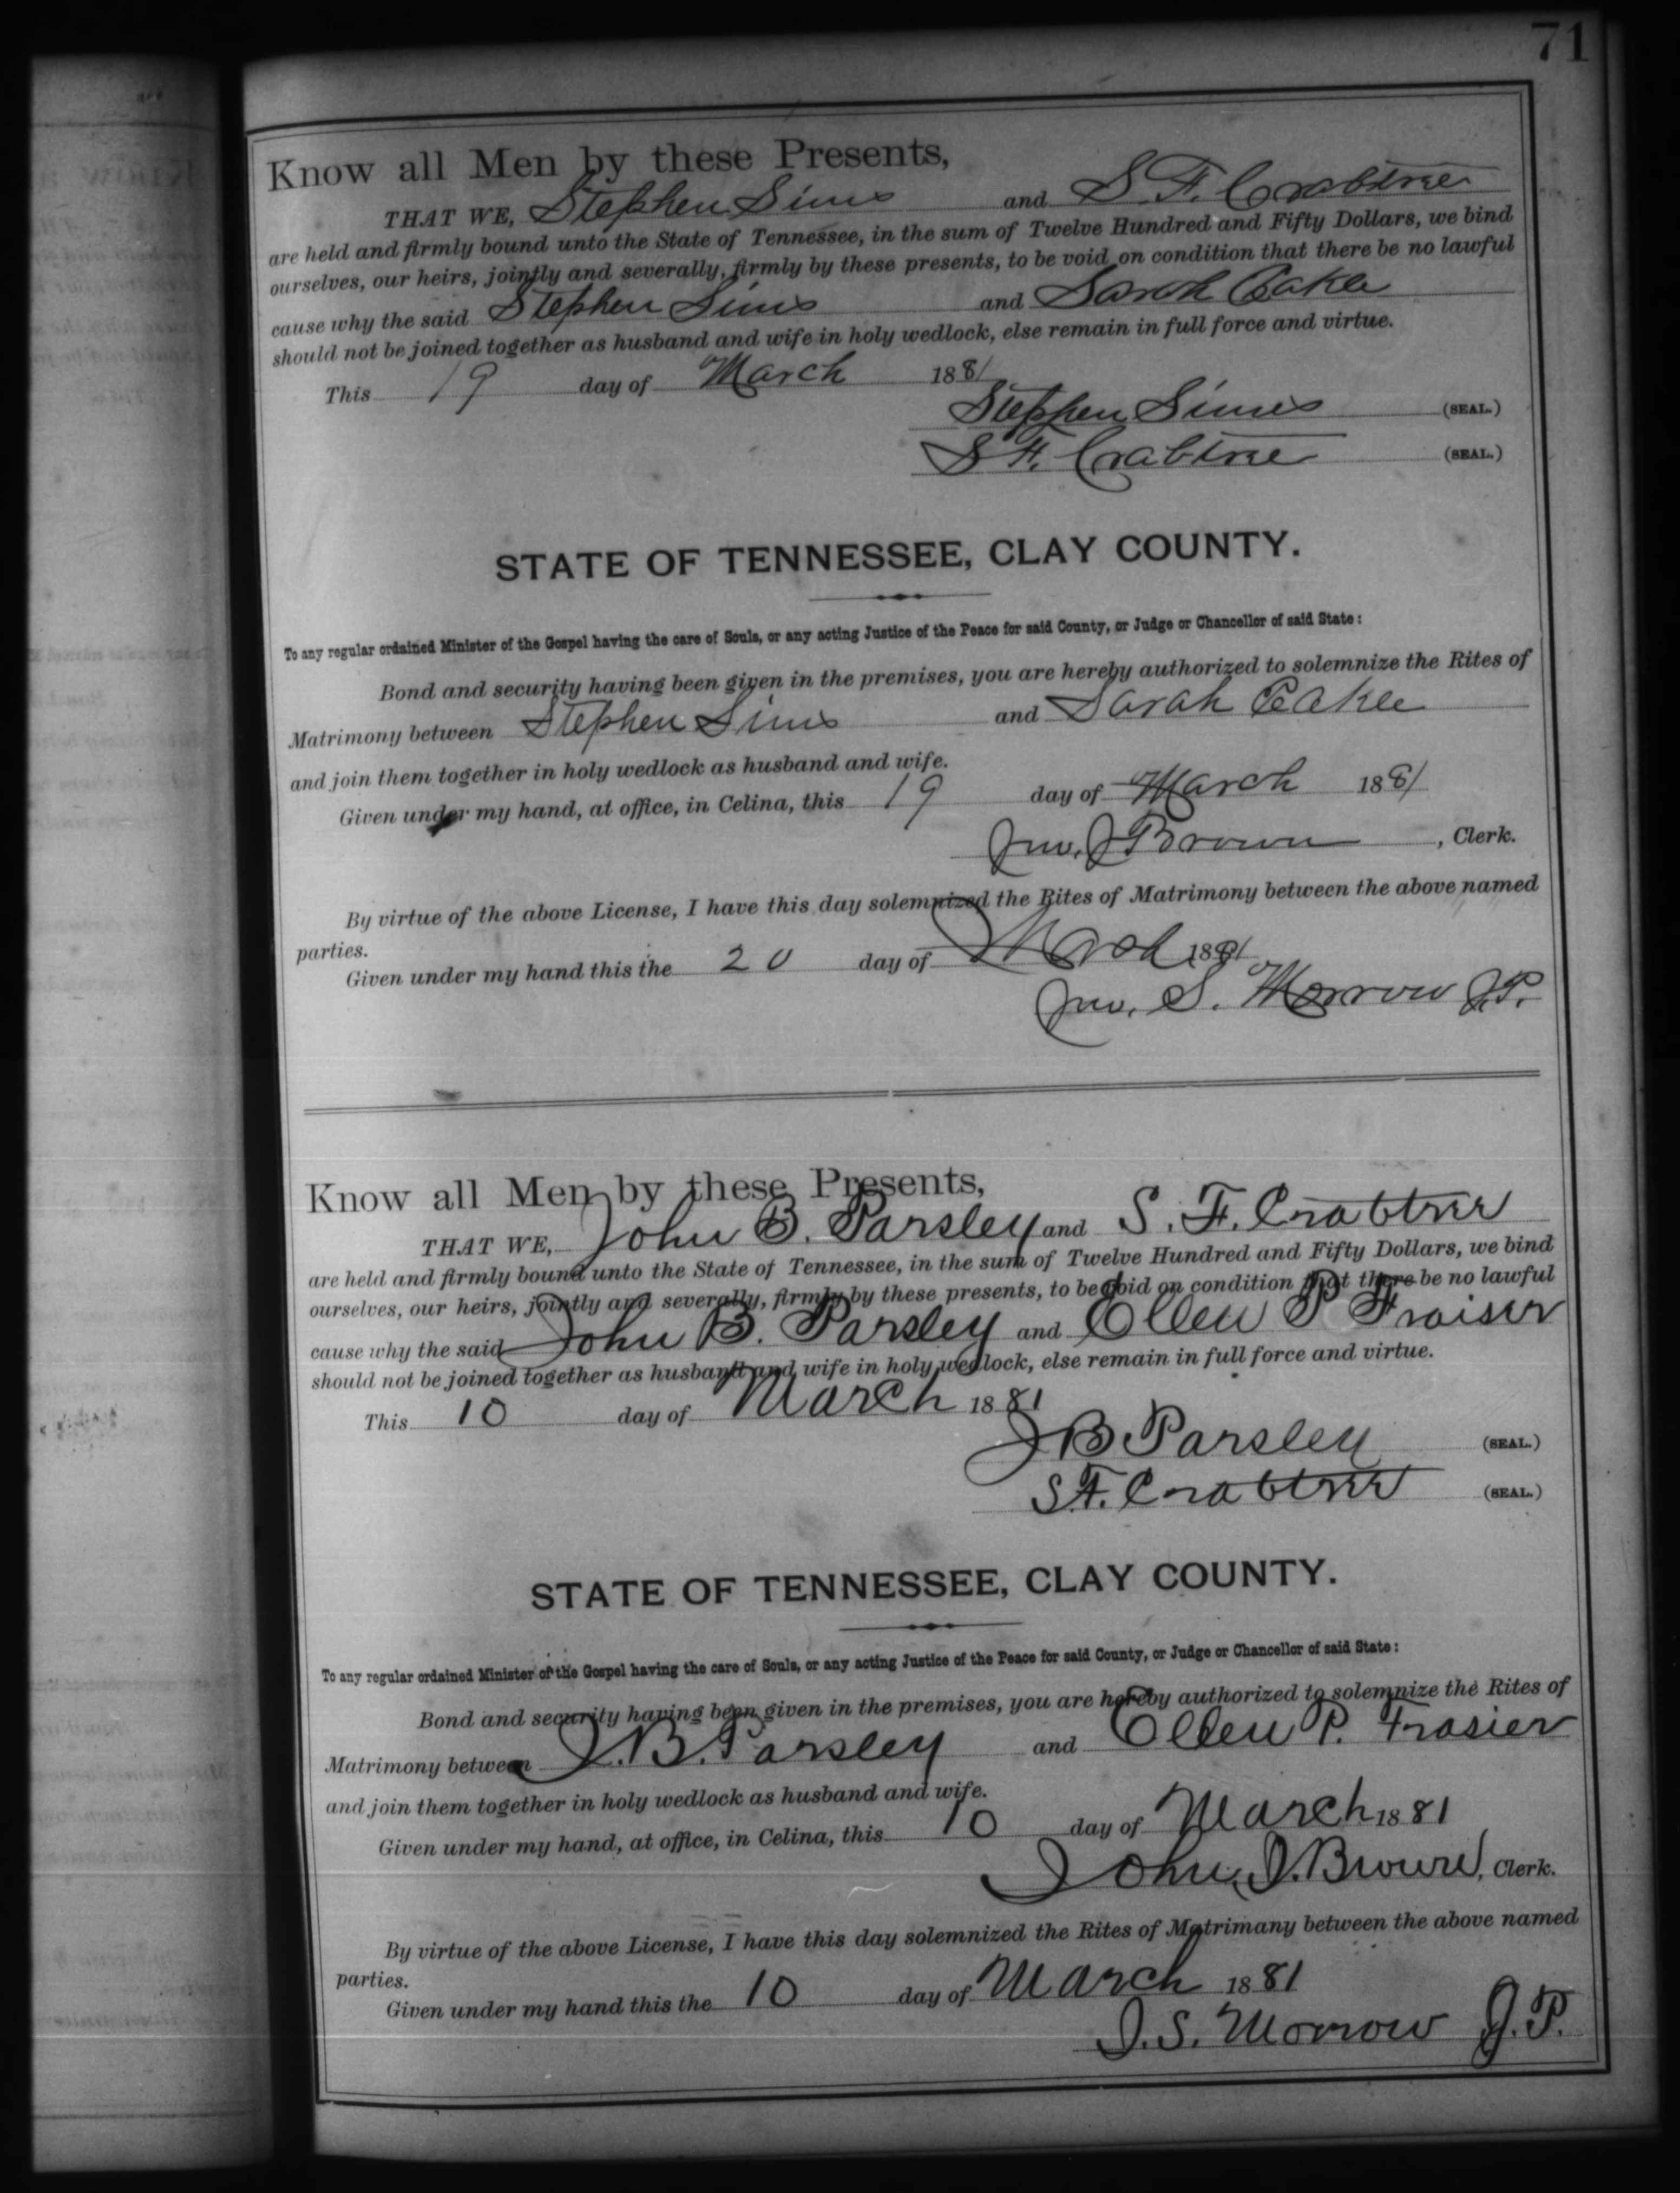 71
Know all Men by these Presents,
THAT WE, Stephen Sims and S. F. Crabtree
are held and firmly bound unto the State of Tennessee, in the sum of Twelve Hundred and Fifty Dollars, we bind
ourselves, our heirs, jointly and severally, firmly by these presents, to be void on condition that there be no lawful
cause why the said Stephen Sims and Sarah Eakle
should not be joined together as husband and wife in holy wedlock, else remain in full force and virtue.
This 19 day of March 1881
Stephen Sims (SEAL.)
S F. Crabtree (SEAL.)
STATE OF TENNESSEE, CLAY COUNTY.
To any regular ordained Minister of the Gospel having the care of Souls, or any acting Justice of the Peace for said County, or Judge or Chancellor of said State:
Bond and security having been given in the premises, you are hereby authorized to solemnize the Rites of
Matrimony between Stephen Sims and Sarah Eakle
and join them together in holy wedlock as husband and wife.
Given under my hand, at office, in Celina, this 19 day of March 1881
Jno. J Brown, Clerk.
By virtue of the above License, I have this day solemnized the Rites of Matrimony between the above named
parties.
Given under my hand this the 20 day of March 1881
Jno. S. Morrow J.P.
Know all Men by these Presents,
THAT WE, John B. Parsley and S. F. Crabtree
are held and firmly bound unto the State of Tennessee, in the sum of Twelve Hundred and Fifty Dollars, we bind
ourselves, our heirs, jointly and severally, firmly by these presents, to be void on condition that there be no lawful
cause why the said John B. Parsley and Ellen P Fraiser
should not be joined together as husband and wife in holy wedlock, else remain in full force and virtue.
This 10 day of March 1881
J B Parsley (SEAL.)
S.F. Crabtree (SEAL.)
STATE OF TENNESSEE, CLAY COUNTY.
To any regular ordained Minister of the Gospel having the care of Souls, or any acting Justice of the Peace for said County, or Judge or Chancellor of said State:
Bond and security having been given in the premises, you are hereby authorized to solemnize the Rites of
Matrimony between J. B. Parsley and Ellen P. Frasier
and join them together in holy wedlock as husband and wife.
Given under my hand, at office, in Celina, this 10 day of March 1881
John, J. Brown, Clerk.
By virtue of the above License, I have this day solemnized the Rites of Matrimany between the above named
parties.
Given under my hand this the 10 day of March 1881
J. S. Morrow J. P.